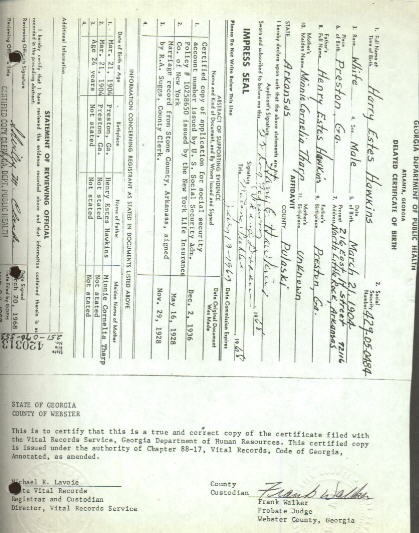 GEORGIA DEPARTMENT OF PUBLIC HEALTH
ATLANTA, GEORGIA
DELAYED CERTIFICATE OF BIRTH
1. Full Name at Time of Birth Harry Estes Hawkins 2. Social Security Number 429-05-0484
3. Race White 4. Sex Male 5. Date of Birth March 21, 1904
6. Place of Birth Preston, Ga. 7. Present Address 216 East H Street 72116
North Little Rock, Arkansas
8. Father's Full Name Henry Estes Hawkins 9. Father's Birthplace Preston Ga.
10. Mother's Maiden Name Minnie Cornelia Tharp 11. Mother's Birthplace Unknown
AFFIDAVIT
STATE: Arkansas COUNTY: Pulaski
I hereby declare upon oath that the above statements are true.
Signature
Sworn and subscribed to before me this
IMPRESS SEAL
Title Notary Public
Date Commission Expires
Please Do Not Write Below This Line
ABSTRACT OF SUPPORTING EVIDENCE
Name and Kind of Document and By Whom Issued and Signed Date Original Document Was Made
1. Certified copy of application for social security
account number issued by U. S. Social Security Adm. Dec. 2, 1936
2. Policy # 10258650 issued by the New York Life Insurance
Co. of New York May 16, 1928
3. Marriage record from Stone County, Arkansas, signed
by R.A. Suggs, County Clerk. Nov. 29, 1928
4.
INFORMATION CONCERNING REGISTRANT AS STATED IN DOCUMENTS LISTED ABOVE
Date of Birth or Age Birthplace Name of Father Maiden Name of Mother
1. Mar. 21, 1904 Preston, Ga. Henry Estes Hawkins Minnie Cornelia Tharp
2. Mar. 21, 1904 Preston, Ga. Not stated Not stated
3. Age 24 years Not stated Not stated Not stated
4.
Additional Information:
STATEMENT OF REVIEWING OFFICIAL
I hereby certify that I have reviewed the evidence recorded above and that
Reviewing Official's Signature
Date Signed
March 20, 1968
STATE OF GEORGIA
COUNTY OF WEBSTER
This is to certify that this is a true and correct copy of the certificate filed with
the Vital Records Service, Georgia Department of Human Resources. This certified copy
is issued under the authority of Chapter 88-17, Vital Records, Code of Georgia,
Annotated, as amended.
Michael R. Lavoie
State Vital Records
Registrar and Custodian
Director, Vital Records Service
County
Custodian Frank Walker
Frank Walker
Probate Judge
Webster County, Georgia